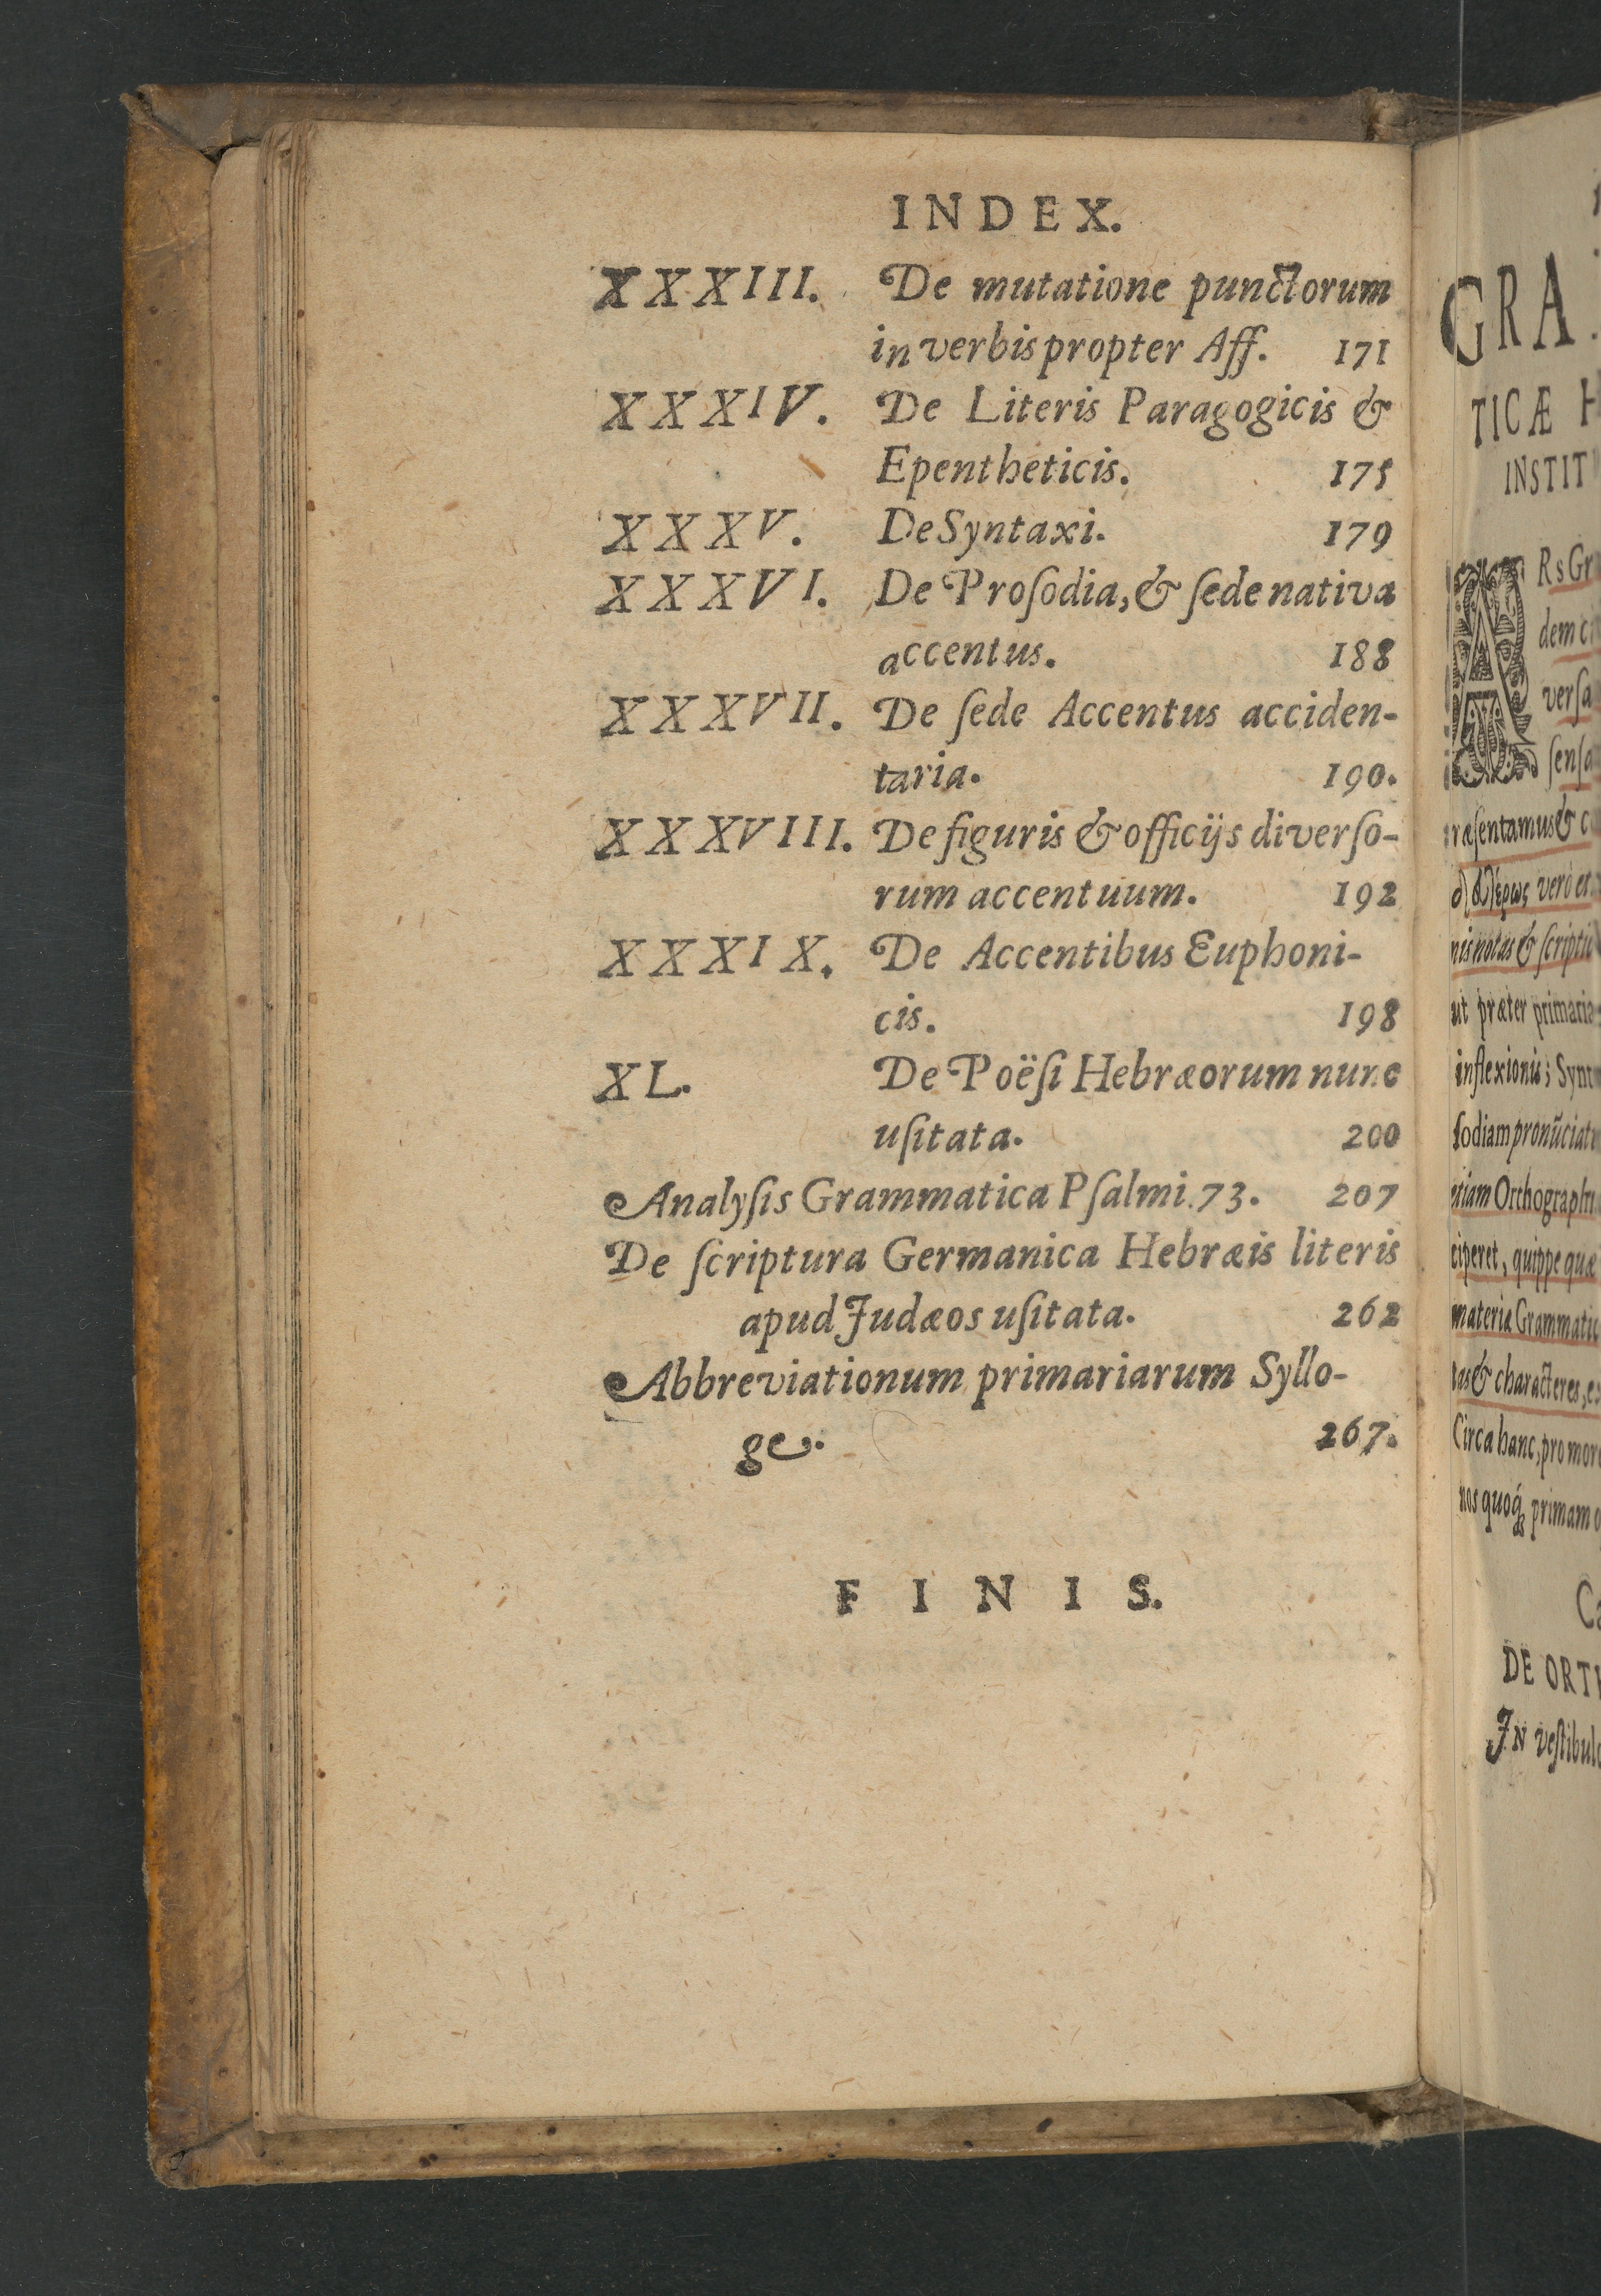 INDEX.
XXXIII. De mutatione punctorum
in verbis propter Aff. 171
XXXIV. De Literis Paragogicis &
Epentheticis. 175
XXXV. De Syntaxi. 179
XXXVI. De Proſodia, & ſede nativa
accentus. 188
XXXVII. De ſede Accentus acciden-
taria. 190.
XXXVIII. De figuris & officijs diverſo-
rum accentuum. 192
XXXIX. De Accentibus Euphoni-
cis. 198
XL. De Poëſi Hebræorum nunc
uſitata. 200
Analyſis Grammatica Pſalmi. 73. 207
De ſcriptura Germanica Hebræis literis
apud Judæos uſitata. 262
Abbreviationum primariarum Syllo-
ge. 267.
FINIS.
GRA
TICÆ H
INSTIT
ARs Gr
dem
verſa
ſenſa
ræſentamus & c
vero et
nis notas & ſcriptu
ut præter primaria
inflexionis; Synt
ſodiam pronũciat
etiam Orthograph
ciperet, quippe quæ
materia Grammatic
tas & characteres, e
Circa hanc, pro mor
nos quoq; primam o
Ca
DE ORT
IN veſtibul